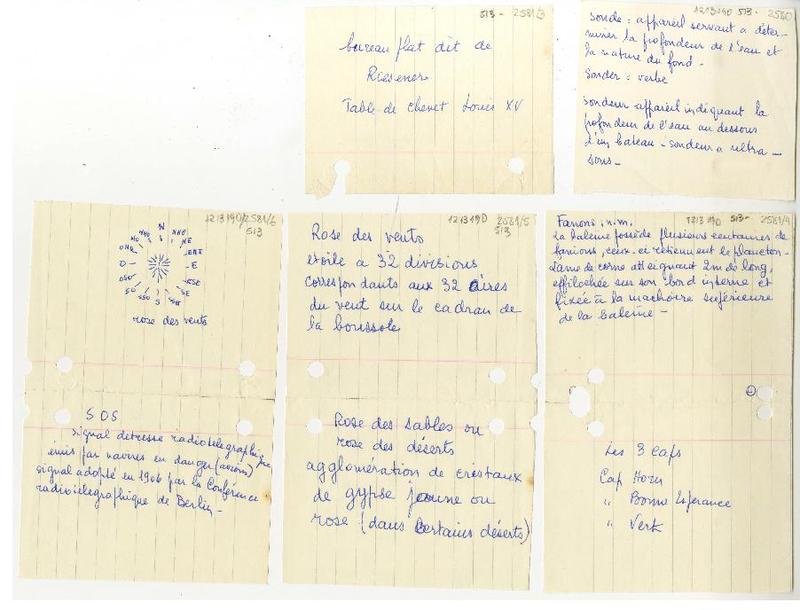 513 - 2581/3
bureau plat dit de
Riesener
Table de chevet Louis XV
121319D 513 - 2580
Sonde : appareil servant a déter-
miner la profondeur de l'eau et
la nature du fond -
Sonder : verbe
Sondeur appareil indiquant la
profondeur de l'eau au dessous
d'un bateau - sondeur a ultra -
sons -
121319D/2581/6
513
N
NNO NNE
NO NE
ONO ENE
O E
OSO ESE
SO SE
SSO SSE
S
rose des vents
SOS
signal détresse radiotélégraphique
émis par navires en danger (avions)
signal adopté en 1906 par la Conférence
radiotélégraphique de Berlin -
121319D 2581/5
513
Rose des vents
étoile a 32 divisions
correspondants aux 32 aires
du vent sur le cadran de
la boussole
Rose des sables ou
rose des déserts
agglomération de cristaux
de gypse jaune ou
rose (dans certains déserts)
121319D 513 - 2581/4
Fanons, n.m.
la baleine possède plusieurs centaines de
fanions, ceux-ci retiennent le plancton -
Lame de corne atteignant 2m de long,
effilochée sur son bord interne et
fixée à la machoire supérieure
de la baleine -
Les 3 Caps
Cap Horn
" Bonne Espérance
" Vert